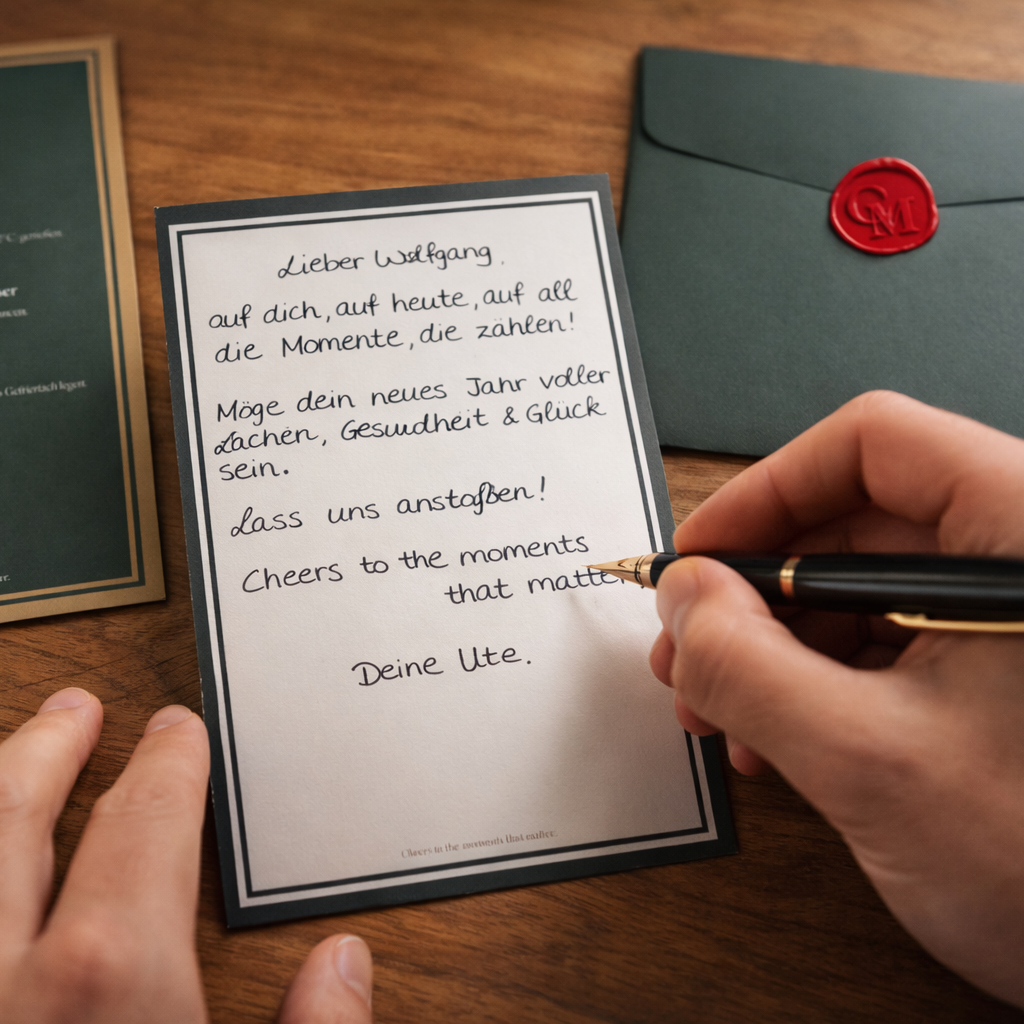 Lieber Wolfgang,
auf dich, auf heute, auf all
die Momente, die zählen!
Möge dein neues Jahr voller
Lachen, Gesundheit & Glück
sein.
Lass uns anstoßen!
Cheers to the moments
that matter
Deine Ute.
Cheers to the moments that